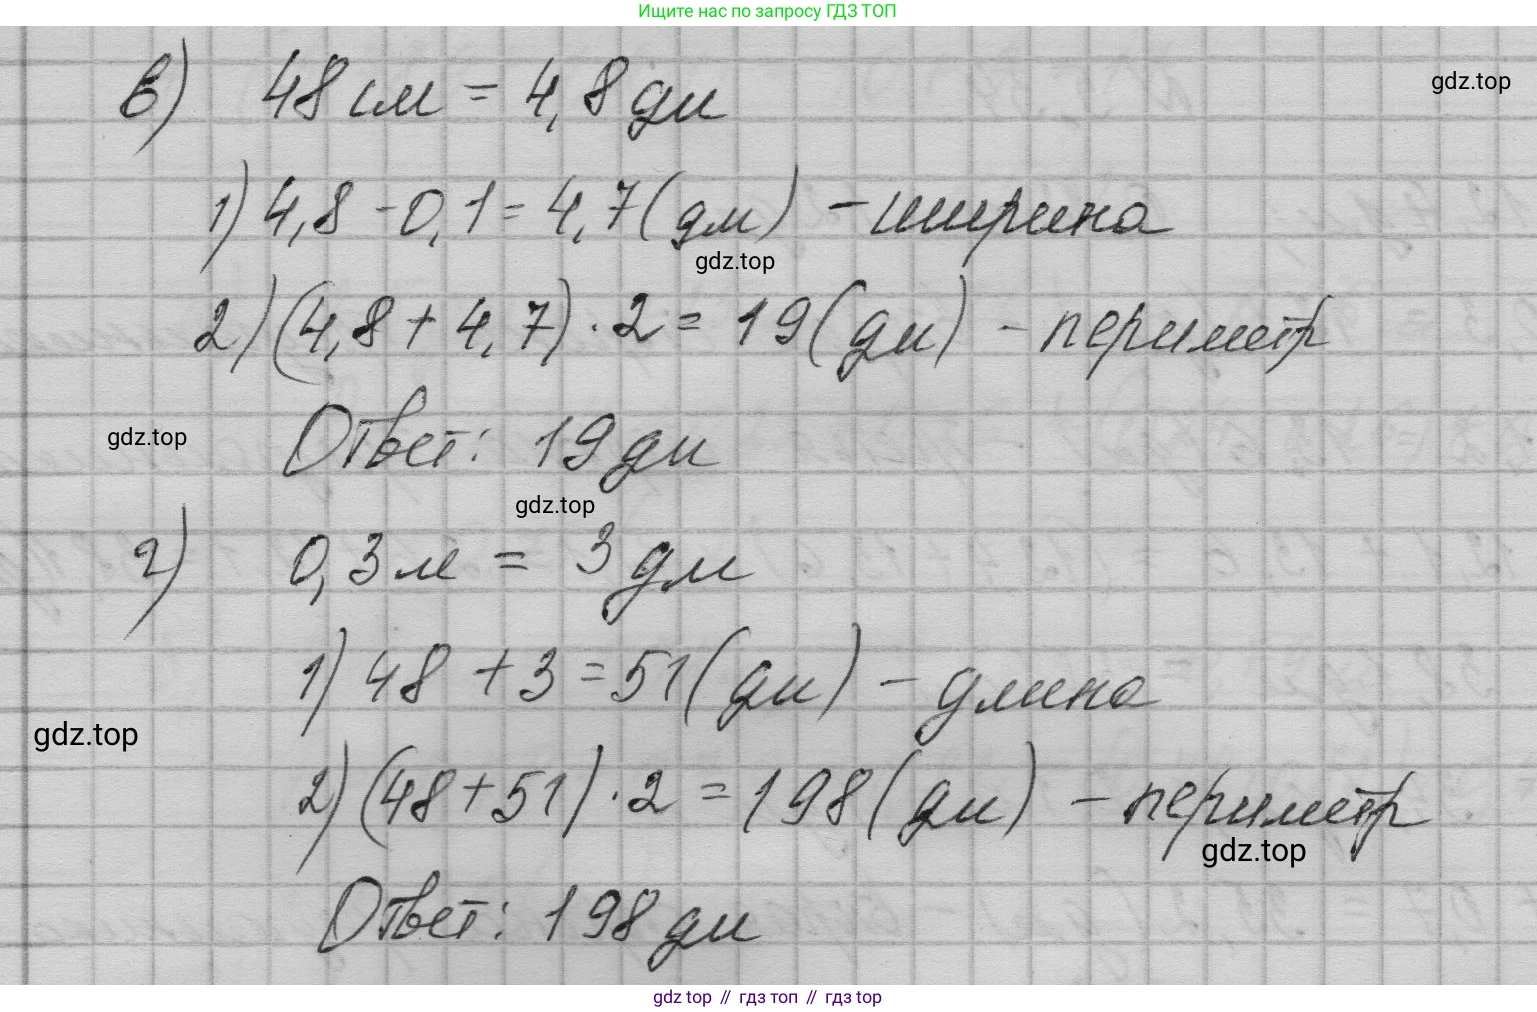 Ищите нас по запросу ГДЗ ТОП
в) 48 см = 4,8 дм
gdz.top
1) 4,8 - 0,1 = 4,7 (дм) - ширина
gdz.top
2) (4,8 + 4,7) · 2 = 19 (дм) - периметр
Ответ: 19 дм
gdz.top
gdz.top
г) 0,3 м = 3 дм
1) 48 + 3 = 51 (дм) - длина
gdz.top
2) (48 + 51) · 2 = 198 (дм) - периметр
gdz.top
Ответ: 198 дм
gdz top // гдз топ // гdz top